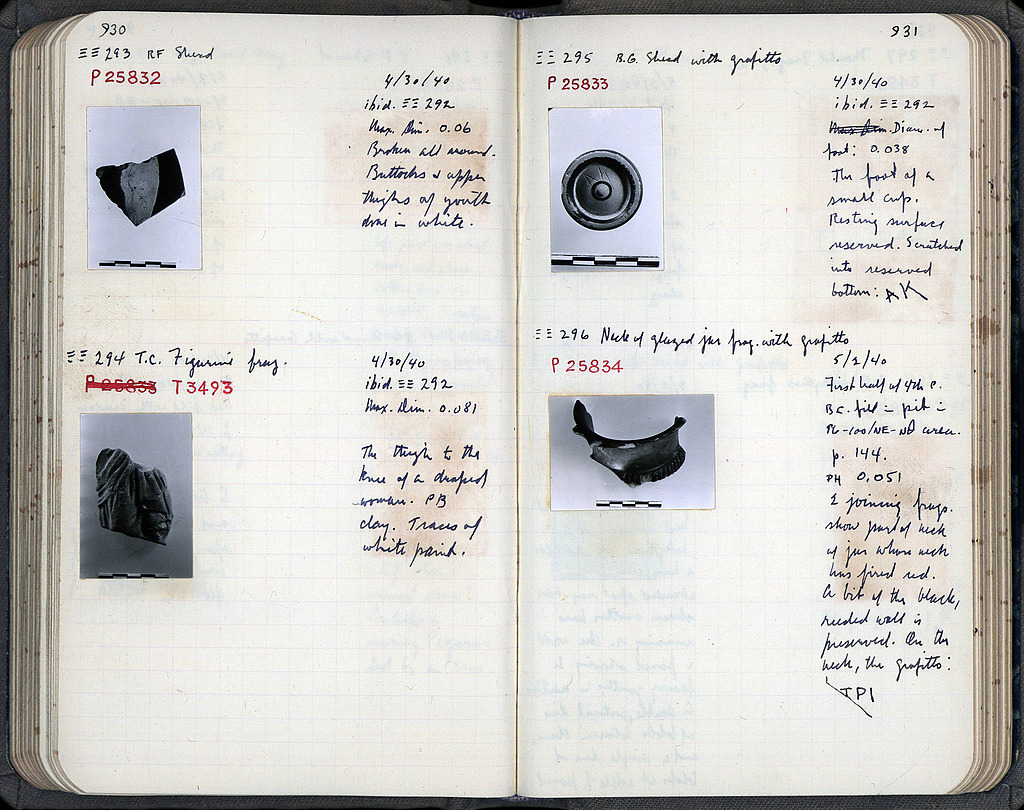 930
ΞΞ 293 RF Sherd
P 25832
4/30/40
ibid. ΞΞ 292
Max. Dim. 0.06
Broken all around.
Buttocks & upper
thighs of youth
done in white.
ΞΞ 294 T.C. Figurine frag.
P 25833 T 3493
4/30/40
ibid. ΞΞ 292
Max. Dim. 0.081
The thigh to the
knee of a draped
woman. PB
clay. Traces of
white paint.
931
ΞΞ 295 B.G. Sherd with grafitto
P 25833
4/30/40
ibid. ΞΞ 292
Max Dim. Diam. of
foot: 0.038
The foot of a
small cup.
Resting surface
reserved. Scratched
into reserved
bottom: AK
ΞΞ 296 Neck of glazed jar frag. with grafitto
P 25834
5/2/40
First half of 4th c.
B.C. fill in pit in
area.
p. 144.
PH 0.051
2 joining frags.
show part of neck
of jar whose neck
has fired red.
A bit of the black,
reeded wall is
preserved. On the
neck, the grafitto:
ΤΡΙ